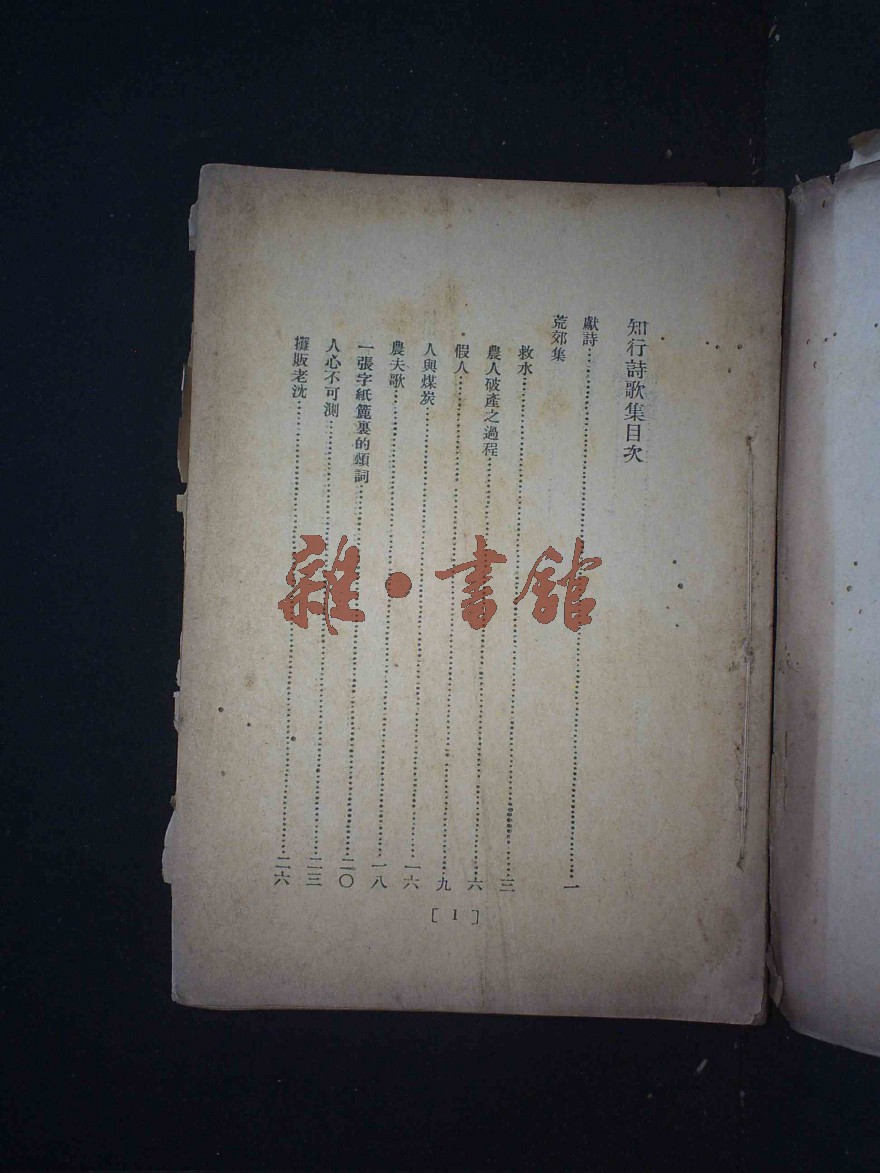 知行詩歌集目次
獻詩……一
荒郊集
救水……三
農人破產之過程……六
假人……九
人與煤炭……一六
農夫歌……一八
一張字紙簏裏的頌詞……二〇
人心不可測……二三
攤販老沈……二六
[1]
雜·書館